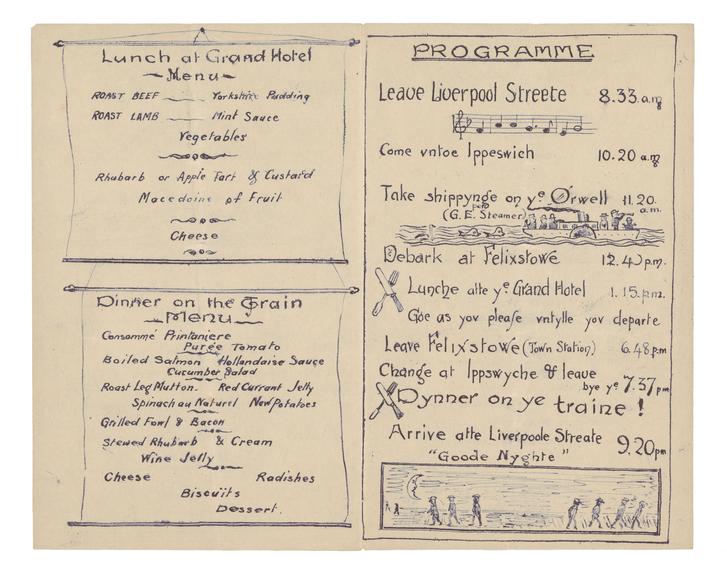 Lunch at Grand Hotel
Menu
ROAST BEEF Yorkshire Pudding
ROAST LAMB Mint Sauce
Vegetables
Rhubarb or Apple Tart & Custard
Macedoine of Fruit
Cheese
Dinner on the Train
MENU
Consommé Printaniere
Purée Tomato
Boiled Salmon Hollandaise Sauce
Cucumber Salad
Roast Leg Mutton. Red Currant Jelly
Spinach au Naturel New Potatoes
Grilled Fowl & Bacon
Stewed Rhubarb & Cream
Wine Jelly
Cheese Radishes
Biscuits
Dessert.
PROGRAMME
Leave Liverpool Streete 8.33. a.m
Come vntoe Ippeswich 10.20 a.m
Take shippynge on ye Orwell 11.20. a.m.
(G.E. Steamer)
Debark at Felixstowe 12.40 p.m.
Lunche atte ye Grand Hotel 1.15. p.m.
Goe as yov pleaſe vntylle yov departe
Leave Felixstowe (Town Station) 6.48 p.m
Change at Ippswyche & leave
bye ye 7.37 pm
Dynner on ye traine !
Arrive atte Liverpoole Streate 9.20 pm
"Goode Nyghte"